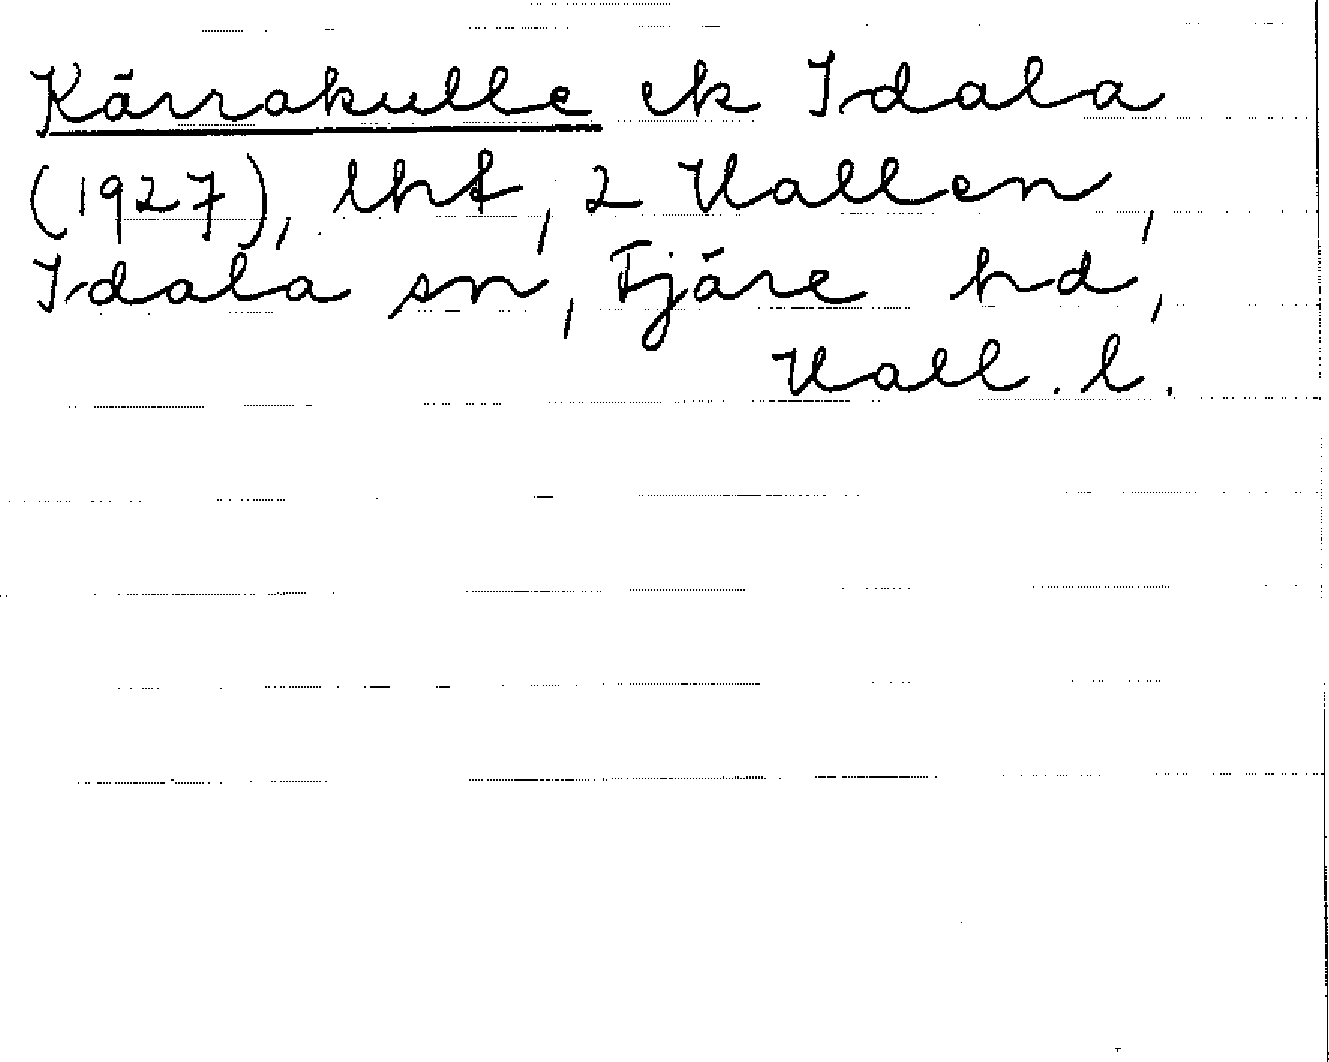 Kärrakulle ek Idala
(1927), lht, 2 Hallen,
Idala sn, Fjäre hd,
Hall. l.